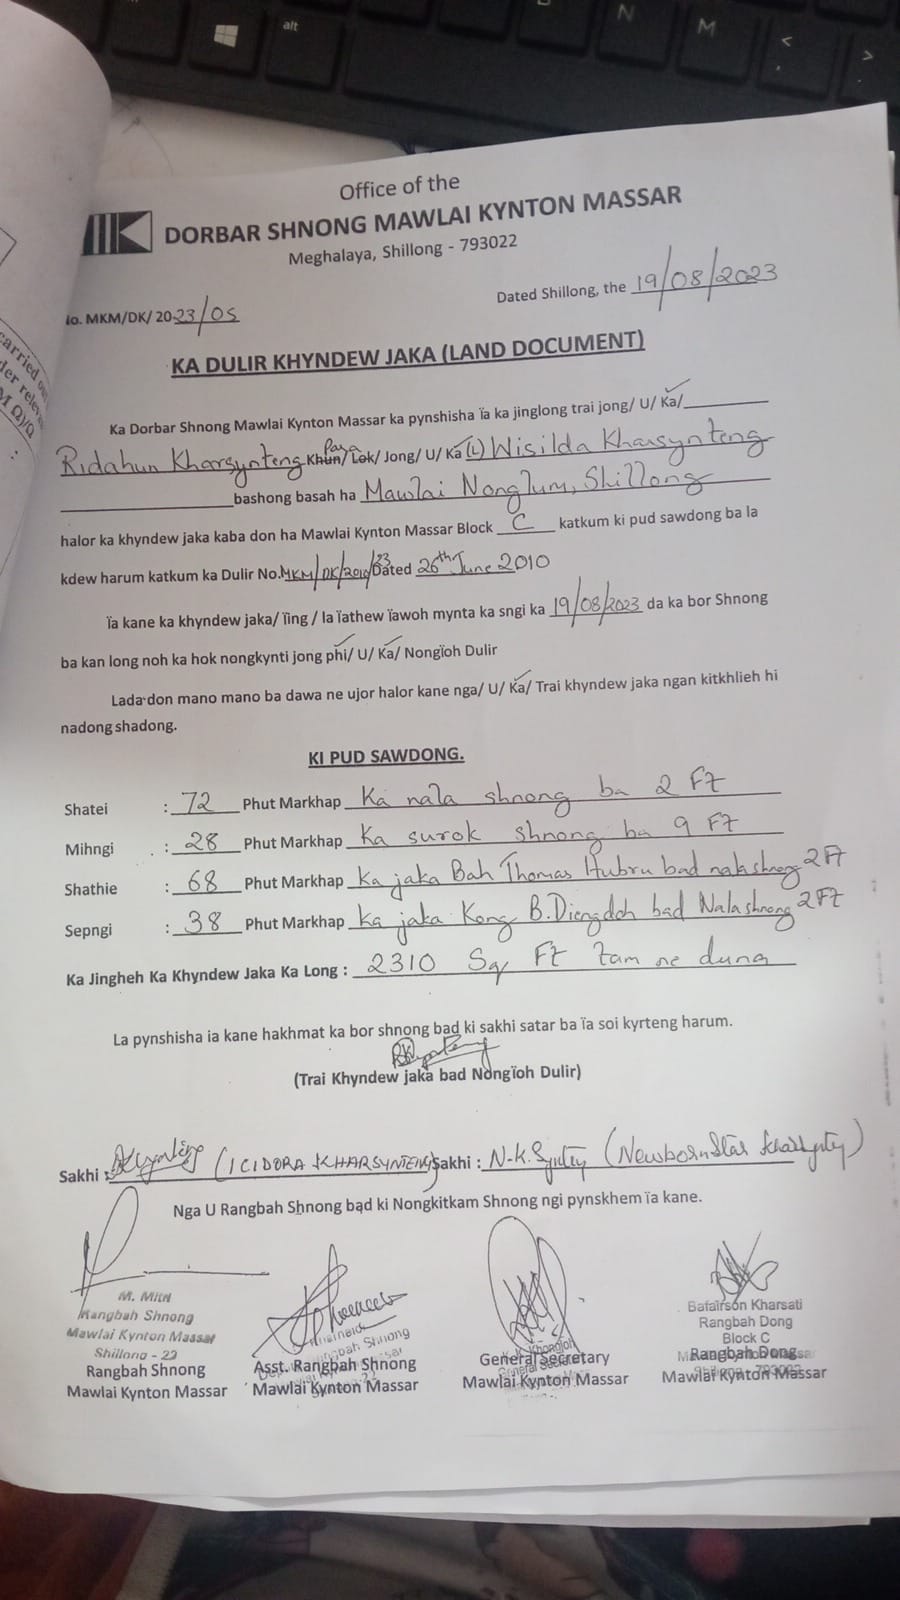 N
M
alt
<
,
>
.
carried ou
der releva
M Q)/Q
:
Office of the
DORBAR SHNONG MAWLAI KYNTON MASSAR
Meghalaya, Shillong - 793022
Dated Shillong, the 19/08/2023
lo. MKM/DK/ 2023/05
KA DULIR KHYNDEW JAKA (LAND DOCUMENT)
Ka Dorbar Shnong Mawlai Kynton Massar ka pynshisha ïa ka jinglong trai jong/ U/ Ka/
Ridahun Kharsynteng Khun/ Para Lok/ Jong/ U/ Ka (L) Wisilda Kharsynteng
bashong basah ha Mawlai Nonglum, Shillong
halor ka khyndew jaka kaba don ha Mawlai Kynton Massar Block C katkum ki pud sawdong ba la
kdew harum katkum ka Dulir No. MKM/DK/2010/23 Dated 26th June 2010
ïa kane ka khyndew jaka/ ïing / la ïathew ïawoh mynta ka sngi ka 19/08/2023 da ka bor Shnong
ba kan long noh ka hok nongkynti jong phi/ U/ Ka/ Nongïoh Dulir
Lada don mano mano ba dawa ne ujor halor kane nga/ U/ Ka/ Trai khyndew jaka ngan kitkhlieh hi
nadong shadong.
KI PUD SAWDONG.
Shatei : 72 Phut Markhap Ka nala shnong ba 2 Ft
Mihngi : 28 Phut Markhap Ka surok shnong ba 9 Ft
Shathie : 68 Phut Markhap Ka jaka Bah Thomas Hubru bad nala shnong 2 Ft
Sepngi : 38 Phut Markhap Ka jaka Kong B. Diengdoh bad Nala shnong 2 Ft
Ka Jingheh Ka Khyndew Jaka Ka Long : 2310 Sq Ft tam ne duna
La pynshisha ia kane hakhmat ka bor shnong bad ki sakhi satar ba ïa soi kyrteng harum.
(Trai Khyndew jaka bad Nongïoh Dulir)
Sakhi : (ICIDORA KHARSYNTENG) Sakhi : N.K. Syntey (Newborn Star Kharsynty)
Nga U Rangbah Shnong bad ki Nongkitkam Shnong ngi pynskhem ïa kane.
M. Mite
Rangbah Shnong
Mawlai Kynton Massar
Shillong - 22
Rangbah Shnong
Mawlai Kynton Massar
Asst. Rangbah Shnong
Mawlai Kynton Massar
General Secretary
Mawlai Kynton Massar
Bafairson Kharsati
Rangbah Dong
Block C
Rangbah Dong
Mawlai Kynton Massar